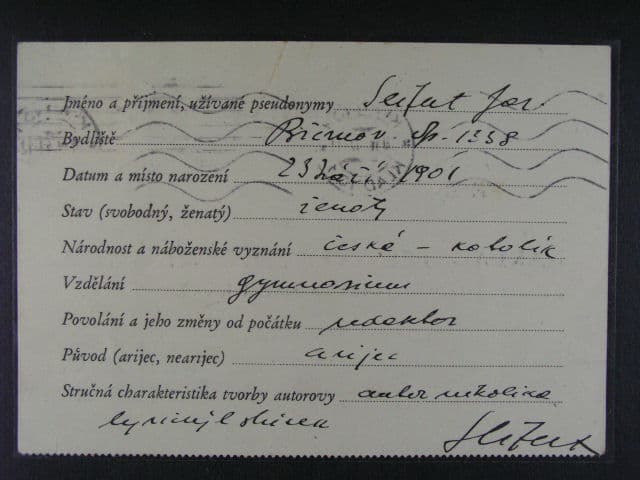 Jméno a příjmení, užívané pseudonymy Seifert Jar.
Bydliště Břevnov čp. 1238
Datum a místo narození 23 září 1901
Stav (svobodný, ženatý) ženatý
Národnost a náboženské vyznání česká – katolík
Vzdělání gymnasium
Povolání a jeho změny od počátku redaktor
Původ (arijec, nearijec) arijec
Stručná charakteristika tvorby autorovy autor několika
lyrických sbírek
Seifert